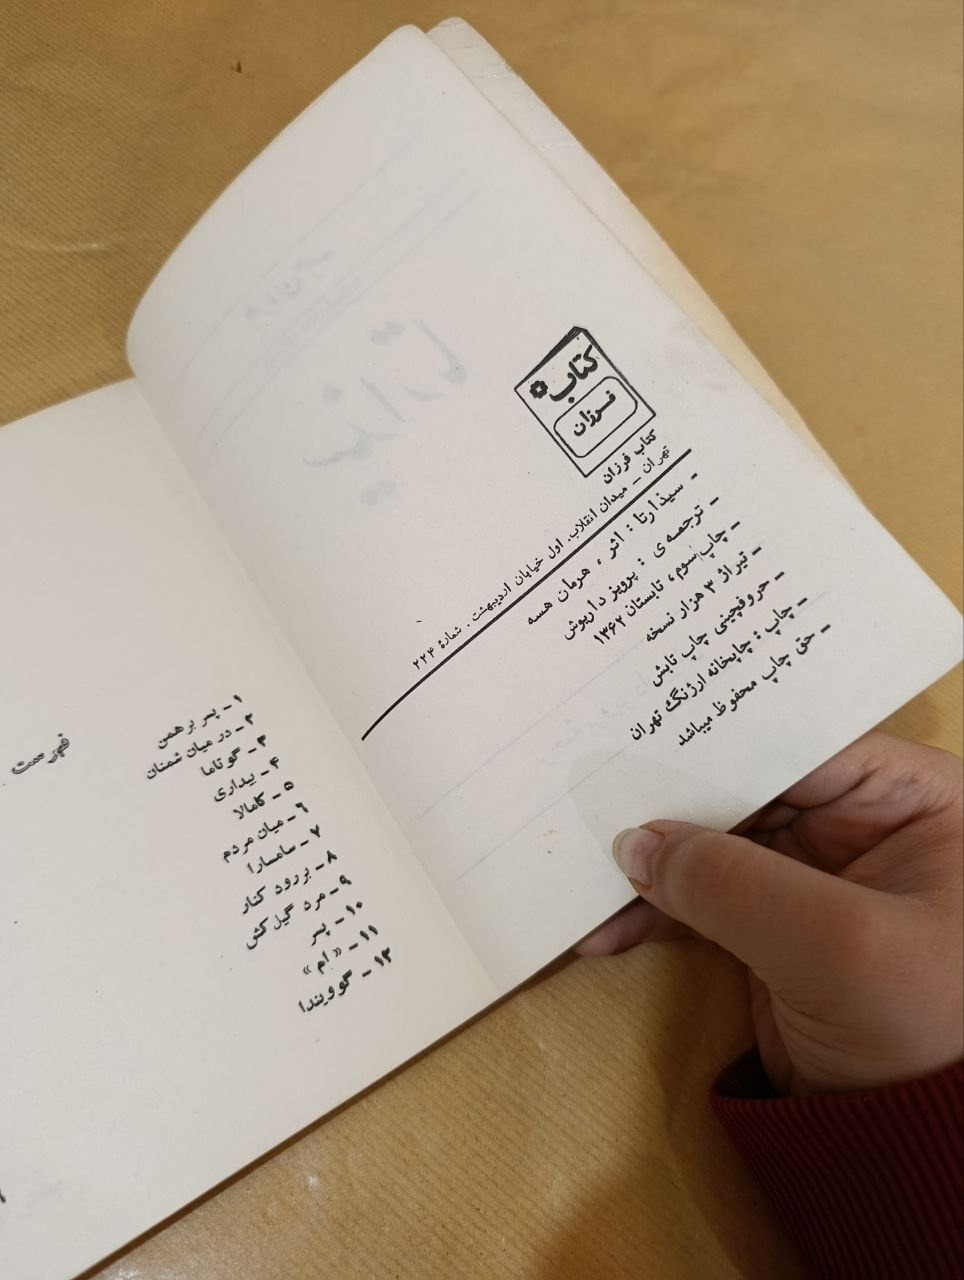 کتاب
فرزان
کتاب فرزان
تهران – میدان انقلاب. اول خیابان اردیبهشت . شماره ۲۲۴
- سیذارتا : اثر ، هرمان هسه
- ترجمه‌ی : پرویز داریوش
- چاپ سوم، تابستان ۱۳۶۲
- تیراژ ۳ هزار نسخه
- حروفچینی چاپ تابش
- چاپ : چاپخانه ارژنگ تهران
- حق چاپ محفوظ میباشد
فهرست
۱- پسر برهمن
۲- در میان شمنان
۳- گوتاما
۴- بیداری
۵- کامالا
۶- میان مردم
۷- سامسارا
۸- بر رود کنار
۹- مرد گیل کش
۱۰- پسر
۱۱- «ام»
۱۲- گوویندا